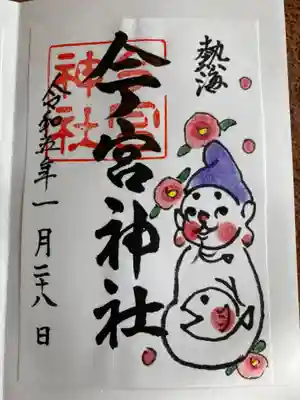 熱海
今宮神社
今宮神社
令和五年一月二十八日